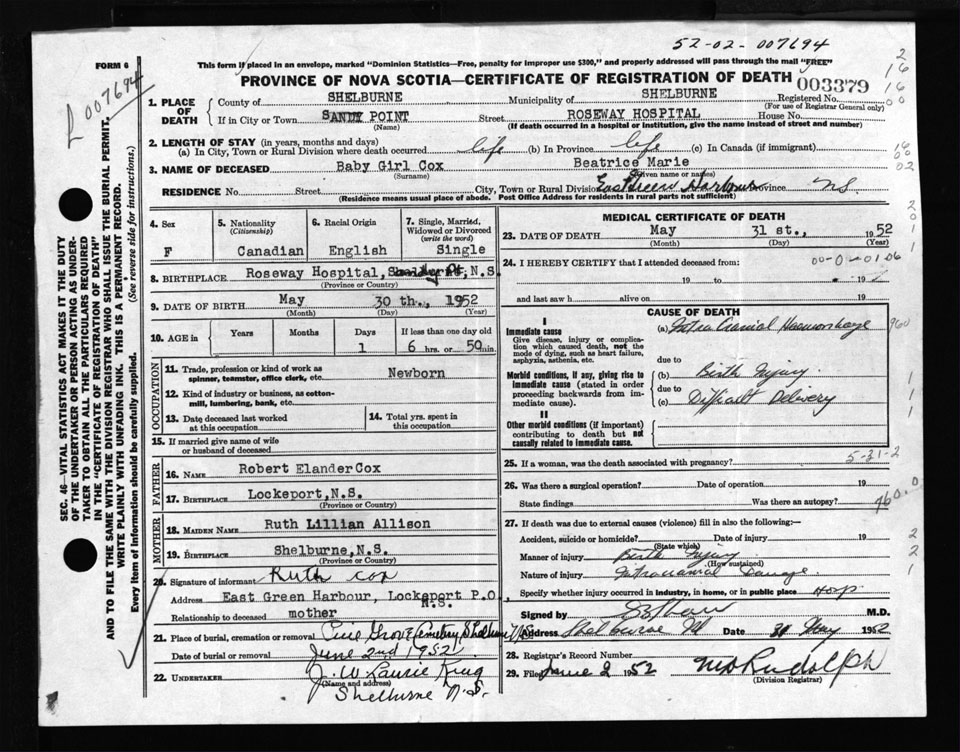 52-02-007694
FORM 6
This form if placed in an envelope, marked "Dominion Statistics—Free, penalty for improper use $300," and properly addressed will pass through the mail "FREE"
PROVINCE OF NOVA SCOTIA—CERTIFICATE OF REGISTRATION OF DEATH
003379
L007694
Registered No.
(For use of Registrar General only)
1. PLACE OF DEATH
County of SHELBURNE Municipality of SHELBURNE
If in City or Town SANDY POINT Street ROSEWAY HOSPITAL House No.
(Name) (If death occurred in a hospital or institution, give the name instead of street and number)
2. LENGTH OF STAY (in years, months and days)
(a) In City, Town or Rural Division where death occurred life (b) In Province life (c) In Canada (if immigrant)
3. NAME OF DECEASED Baby Girl Cox Beatrice Marie
(Surname) (Given name or names)
RESIDENCE No. Street City, Town or Rural Division East Green Harbour Province NS
(Residence means usual place of abode. Post Office Address for residents in rural parts not sufficient)
4. Sex
F
5. Nationality
(Citizenship)
Canadian
6. Racial Origin
English
7. Single, Married, Widowed or Divorced
(write the word)
Single
8. BIRTHPLACE Roseway Hospital, N.S.
(Province or Country)
9. DATE OF BIRTH May 30 th., 1952
(Month) (Day) (Year)
10. AGE in
Years Months Days If less than one day old
1 6 hrs. or 50 min.
OCCUPATION
11. Trade, profession or kind of work as spinner, teamster, office clerk, etc. Newborn
12. Kind of industry or business, as cotton-mill, lumbering, bank, etc.
13. Date deceased last worked at this occupation
14. Total yrs. spent in this occupation
15. If married give name of wife or husband of deceased
FATHER
16. NAME Robert Elander Cox
17. BIRTHPLACE Lockeport, N.S.
(Province or Country)
MOTHER
18. MAIDEN NAME Ruth Lillian Allison
19. BIRTHPLACE Shelburne, N.S.
(Province or Country)
20. Signature of informant Ruth Cox
Address East Green Harbour, Lockeport P.O.
N.S.
Relationship to deceased mother
21. Place of burial, cremation or removal Pine Grove Cemetery Shelburne N.S.
Date of burial or removal June 2nd 1952
22. UNDERTAKER J. W Laurie King
(Name and address)
Shelburne N.S.
MEDICAL CERTIFICATE OF DEATH
23. DATE OF DEATH May 31 st., 1952
(Month) (Day) (Year)
24. I HEREBY CERTIFY that I attended deceased from:
19 to 19
and last saw h alive on 19
CAUSE OF DEATH
I
Immediate cause
Give disease, injury or complication which caused death, not the mode of dying, such as heart failure, asphyxia, asthenia, etc.
(a) Intra Cranial Haemorrhage
960
due to
Morbid conditions, if any, giving rise to immediate cause (stated in order proceeding backwards from immediate cause).
(b) Birth Injury
due to
(c) Difficult Delivery
II
Other morbid conditions (if important) contributing to death but not causally related to immediate cause.
5-31-2
25. If a woman, was the death associated with pregnancy?
26. Was there a surgical operation? Date of operation 19
State findings Was there an autopsy?
760.0
27. If death was due to external causes (violence) fill in also the following:—
Accident, suicide or homicide? Date of injury 19
(State which)
Manner of injury Birth Injury
(How sustained)
Nature of injury Intracranial Damage
Specify whether injury occurred in industry, in home, or in public place Hosp
Signed by M.D.
Address Shelburne NS Date 31 May 1952
28. Registrar's Record Number
29. Filed June 2 1952 Rudolph
(Division Registrar)
SEC. 46—VITAL STATISTICS ACT MAKES IT THE DUTY
OF THE UNDERTAKER OR PERSON ACTING AS UNDERTAKER
TO OBTAIN ALL THE PARTICULARS REQUIRED
IN THE "CERTIFICATE OF REGISTRATION OF DEATH"
AND TO FILE THE SAME WITH THE DIVISION REGISTRAR WHO SHALL ISSUE THE BURIAL PERMIT.
WRITE PLAINLY WITH UNFADING INK. THIS IS A PERMANENT RECORD.
Every item of information should be carefully supplied. (See reverse side for instructions.)